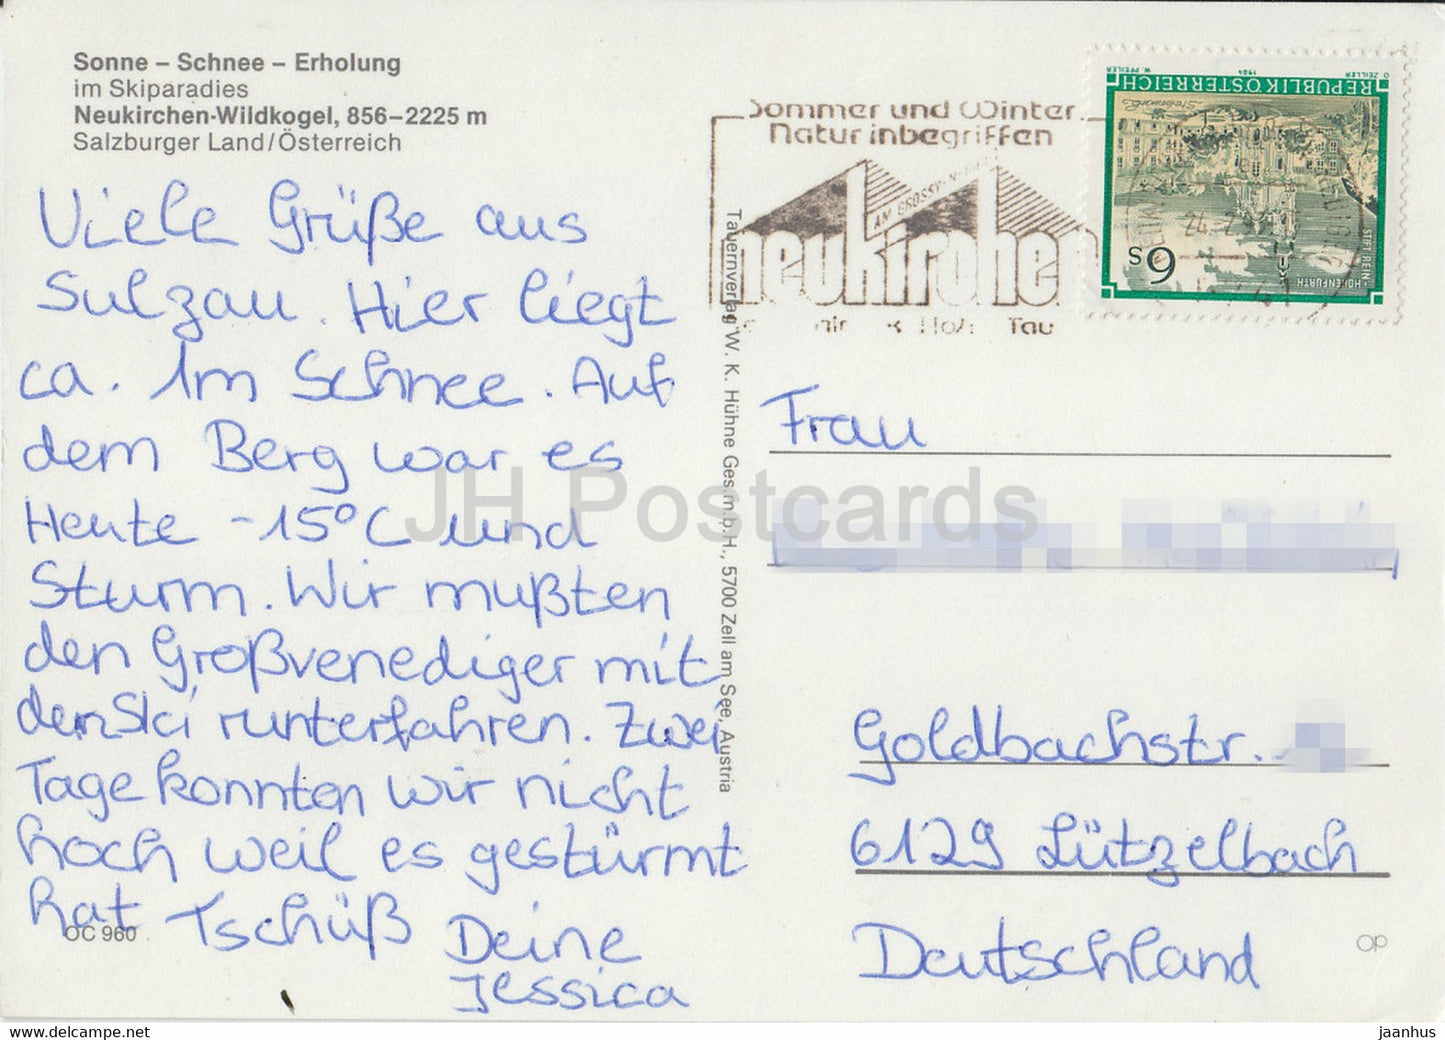 Sonne – Schnee – Erholung
im Skiparadies
Neukirchen-Wildkogel, 856–2225 m
Salzburger Land/Österreich
Viele Grüße aus
Sulzau. Hier liegt
ca. 1m Schnee. Auf
dem Berg war es
Heute -15°C und
Sturm. Wir mußten
den Großvenediger mit
den Ski runterfahren. Zwei
Tage konnten wir nicht
hoch weil es gestürmt
hat Tschüß Deine
Jessica
OC 960
Tauernverlag W. K. Hühne Ges.m.b.H., 5700 Zell am See, Austria
Sommer und Winter
Natur inbegriffen
AM GROSSV
neukirche
Tau
REPUBLIK ÖSTERREICH
STIFT REIN-HOHENFURTH
Steiermark
6 S
W. PFEILER
1984
O. ZEILLER
24. 2.
Frau
Goldbachstr.
6129 Lützelbach
Deutschland
OP
JH Postcards
delcampe.net
jaanhus